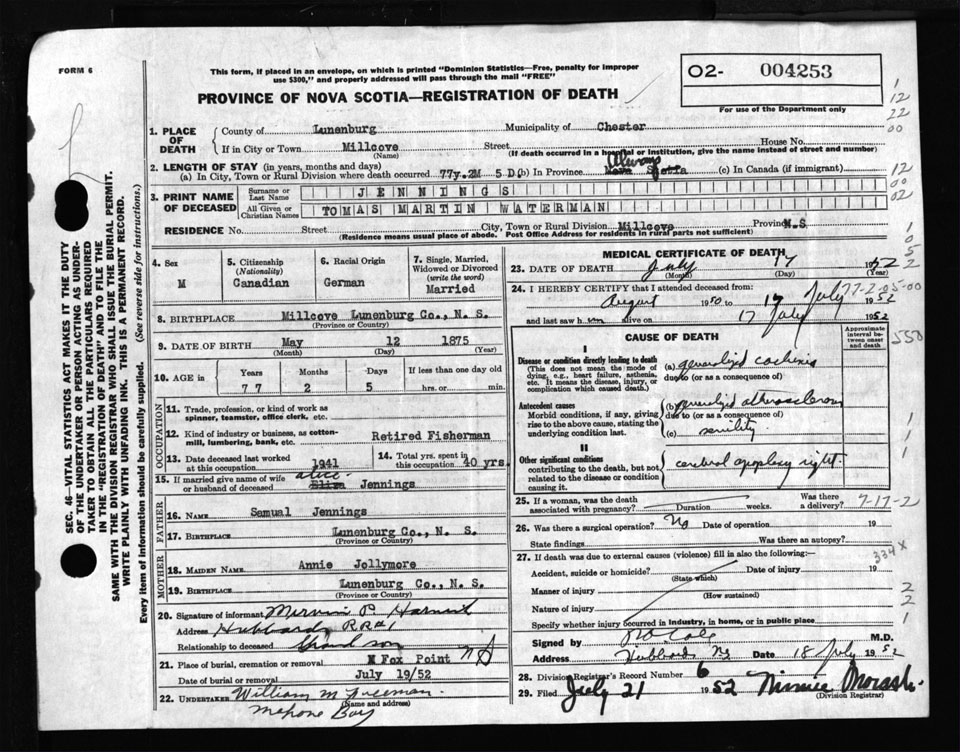 FORM 6
This form, if placed in an envelope, on which is printed "Dominion Statistics—Free, penalty for improper
use $300," and properly addressed will pass through the mail "FREE"
PROVINCE OF NOVA SCOTIA—REGISTRATION OF DEATH
O2- 004253
For use of the Department only
1. PLACE OF DEATH
County of Lunenburg Municipality of Chester
If in City or Town Millcove Street House No.
(Name) (If death occurred in a hospital or institution, give the name instead of street and number)
2. LENGTH OF STAY (in years, months and days)
(a) In City, Town or Rural Division where death occurred 77y.2M 5 D. (b) In Province Always Nova Scotia (c) In Canada (if immigrant)
3. PRINT NAME OF DECEASED
Surname or Last Name JENNINGS
All Given or Christian Names TOMAS MARTIN WATERMAN
RESIDENCE No. Street City, Town or Rural Division Millcove Province N.S
(Residence means usual place of abode. Post Office Address for residents in rural parts not sufficient)
4. Sex M
5. Citizenship (Nationality) Canadian
6. Racial Origin German
7. Single, Married, Widowed or Divorced (write the word) Married
8. BIRTHPLACE Millcove Lunenburg Co., N. S.
(Province or Country)
9. DATE OF BIRTH May 12 1875
(Month) (Day) (Year)
10. AGE in Years Months Days If less than one day old
77 2 5 hrs. or min.
OCCUPATION
11. Trade, profession, or kind of work as spinner, teamster, office clerk, etc.
12. Kind of industry or business, as cotton-mill, lumbering, bank, etc. Retired Fisherman
13. Date deceased last worked at this occupation 1941
14. Total yrs. spent in this occupation 40 yrs.
15. If married give name of wife or husband of deceased Alice Eliza Jennings
FATHER
16. NAME Samual Jennings
17. BIRTHPLACE Lunenburg Co., N. S.
(Province or Country)
MOTHER
18. MAIDEN NAME Annie Jollymore
19. BIRTHPLACE Lunenburg Co., N. S.
(Province or Country)
20. Signature of informant Mervin P. Harnish
Address Hubbards RR#1
Relationship to deceased Grandson
21. Place of burial, cremation or removal Fox Point NS
Date of burial or removal July 19/52
22. UNDERTAKER William M Freeman
(Name and address)
Mahone Bay
MEDICAL CERTIFICATE OF DEATH
23. DATE OF DEATH July 17 1952
(Month) (Day) (Year)
24. I HEREBY CERTIFY that I attended deceased from:
August 1950 to 17 July 1952
and last saw him alive on 17 July 1952
CAUSE OF DEATH
Approximate interval between onset and death
I
Disease or condition directly leading to death
(This does not mean the mode of dying, e.g., heart failure, asthenia, etc. It means the disease, injury, or complication which caused death.)
(a) generalized cachexia
due to (or as a consequence of)
Antecedent causes
Morbid conditions, if any, giving rise to the above cause, stating the underlying condition last.
(b) generalized atherosclerosis
due to (or as a consequence of)
(c) senility
II
Other significant conditions
contributing to the death, but not related to the disease or condition causing it.
cerebral apoplexy right.
25. If a woman, was the death associated with pregnancy? Duration weeks. Was there a delivery?
26. Was there a surgical operation? No Date of operation 19
State findings Was there an autopsy?
27. If death was due to external causes (violence) fill in also the following:—
Accident, suicide or homicide? Date of injury 19
(State which)
Manner of injury
(How sustained)
Nature of injury
Specify whether injury occurred in industry, in home, or in public place
Signed by M.D.
Address Hubbards, NS Date 18 July 1952
28. Division Registrar's Record Number 6
29. Filed July 21 1952 Minnie Morash
(Division Registrar)
SEC. 46—VITAL STATISTICS ACT MAKES IT THE DUTY
OF THE UNDERTAKER OR PERSON ACTING AS UNDER-
TAKER TO OBTAIN ALL THE PARTICULARS REQUIRED
IN THE "REGISTRATION OF DEATH" AND TO FILE THE
SAME WITH THE DIVISION REGISTRAR WHO SHALL ISSUE THE BURIAL PERMIT.
WRITE PLAINLY WITH UNFADING INK. THIS IS A PERMANENT RECORD.
Every item of information should be carefully supplied. (See reverse side for instructions.)
1
12
22
00
12
00
02
77-2-05-00
550
7-17-2
334X
2
2
1